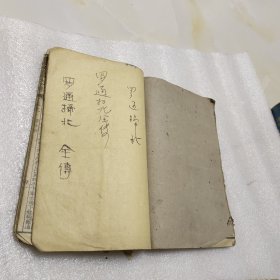 罗通掃北
罗通扫北全傳
罗通掃北 全傳